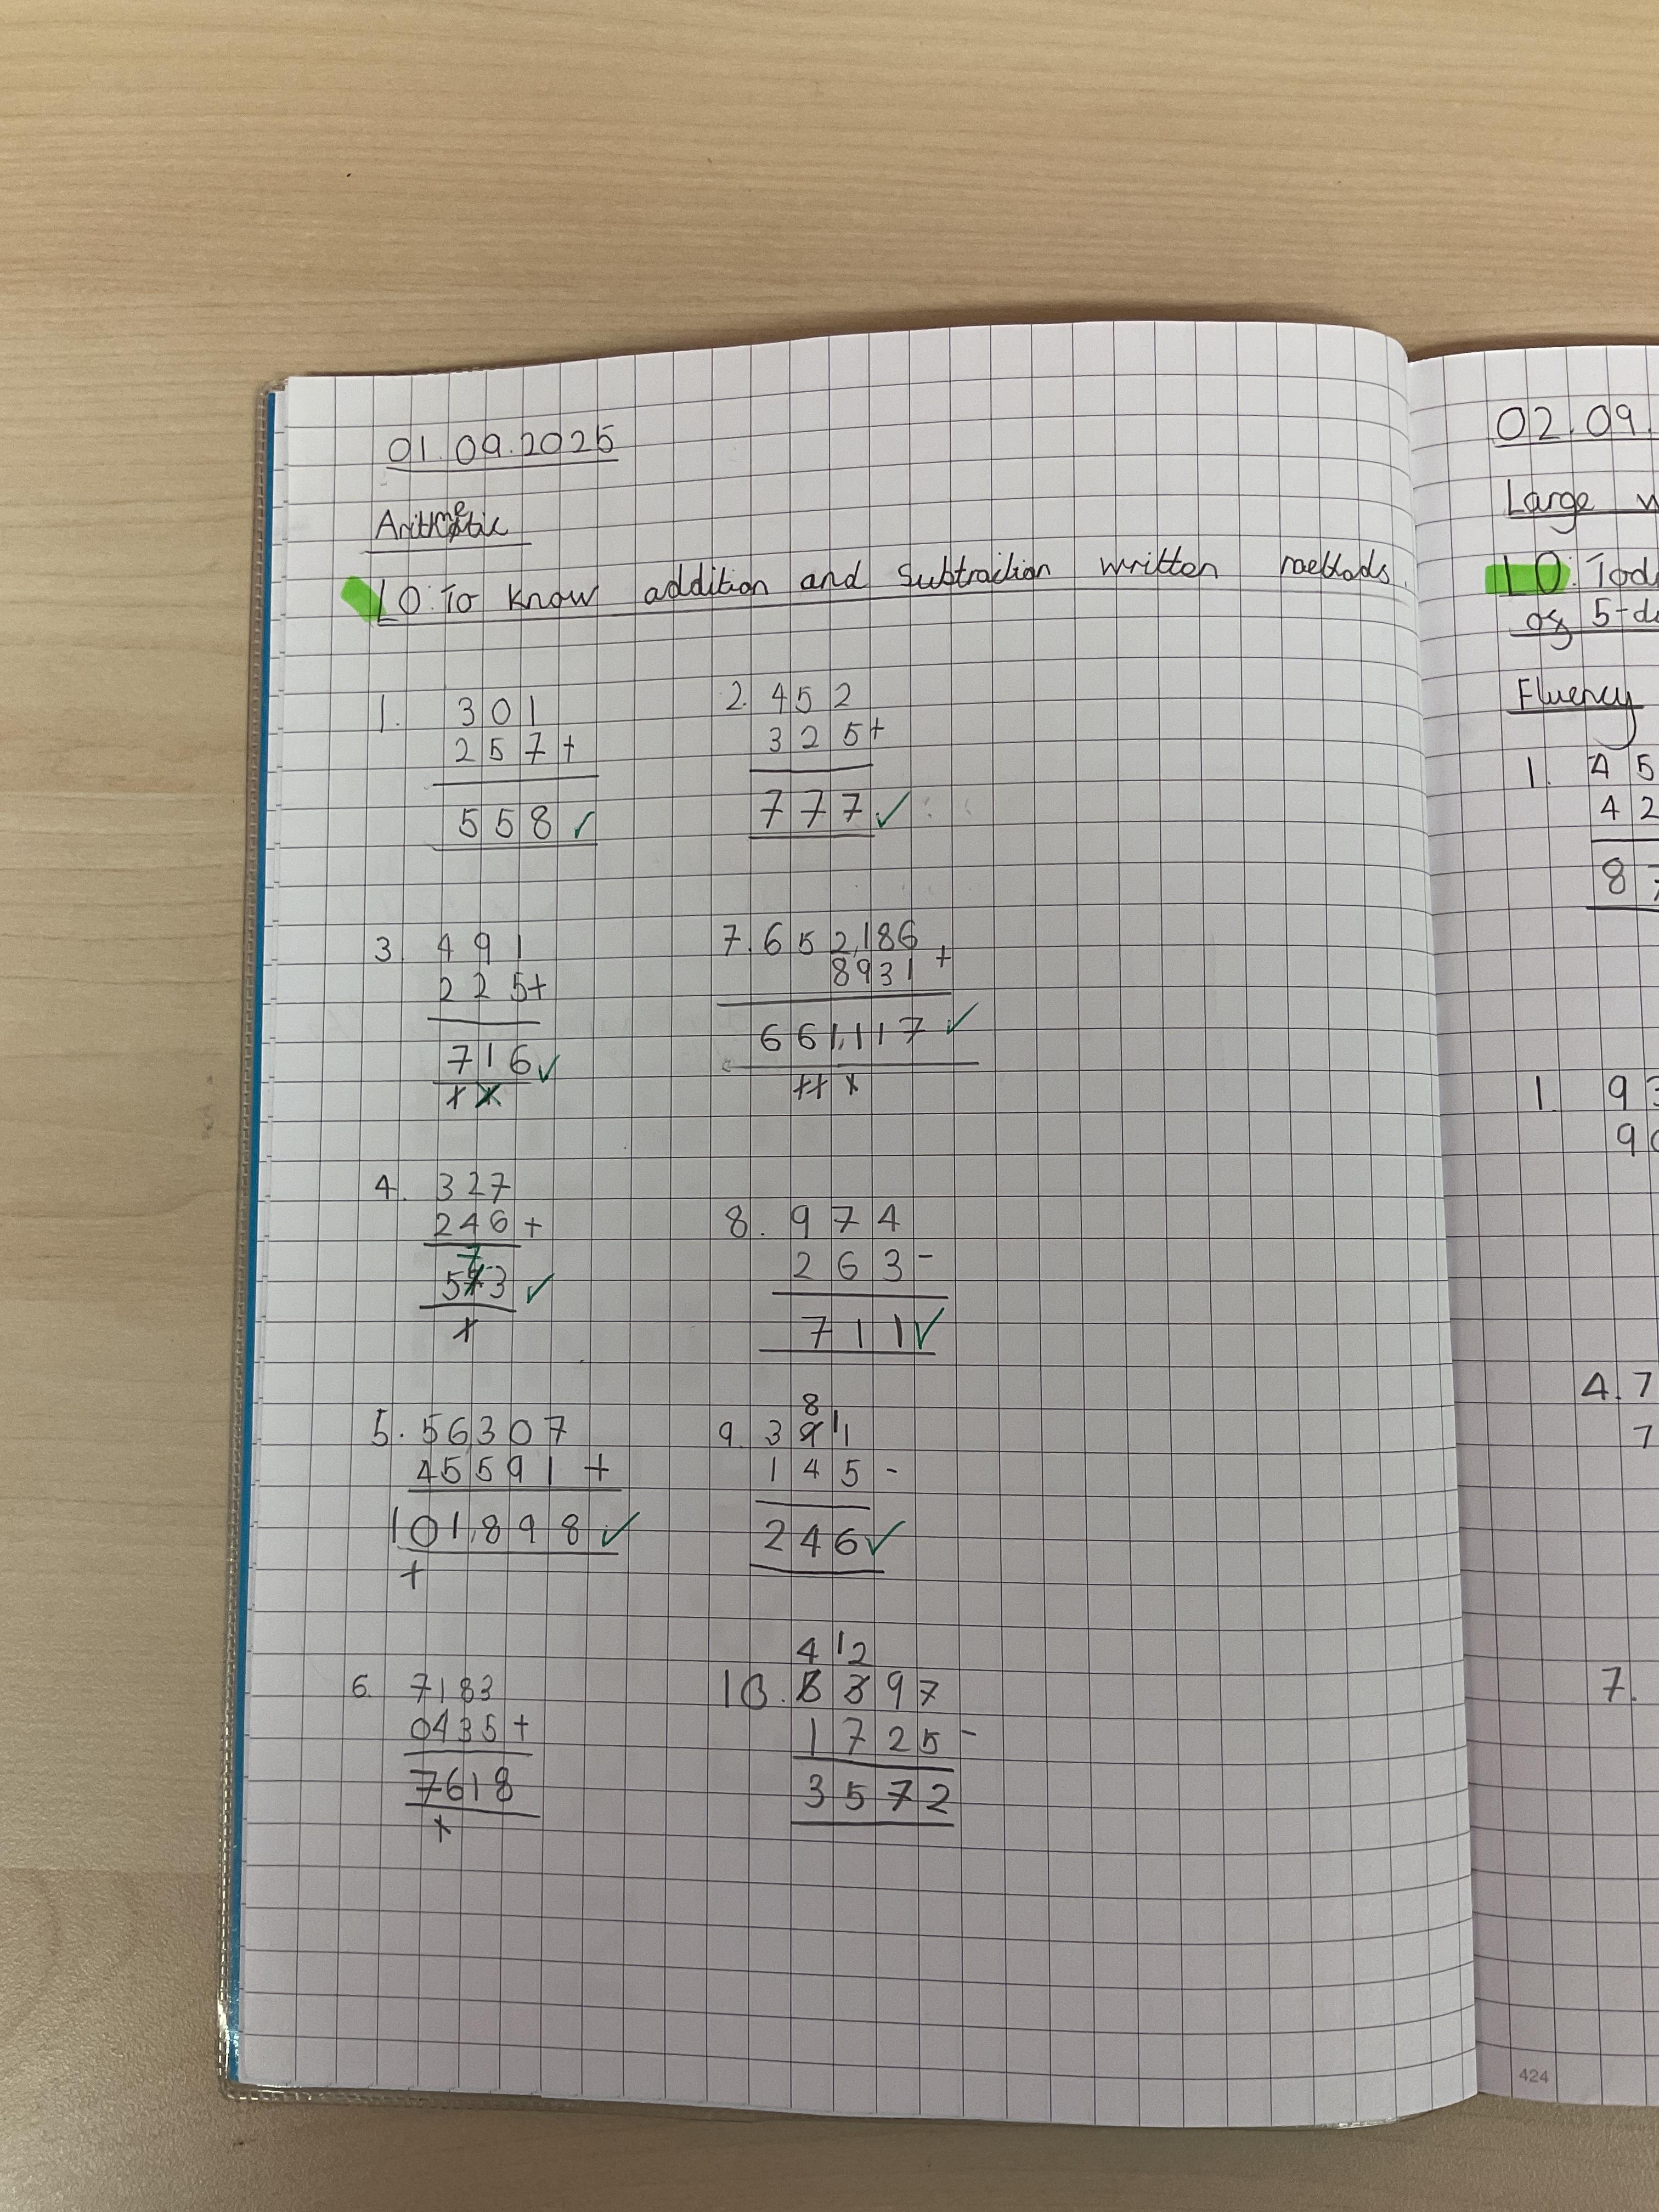 01.09.2025
Arithmetic
LO: To know addition and subtraction written methods.
1. 301
257+
558 ✓
2. 452
325+
777 ✓
3. 491
225+
716 ✓
7. 652,186
8931 +
661,117 ✓
4. 327
246 +
7
573 ✓
8. 974
263 -
711 ✓
5. 56307
45591 +
101,898 ✓
8
9. 3 9 11
145 -
246 ✓
6. 7183
0435 +
7618
4 12
10. 5397
1725 -
3572
02.09.
Large
LO: Tod
of 5-d
Fluency
1. 4 5
4 2
8 7
1. 9 3
9 0
4. 7
7
7.
424